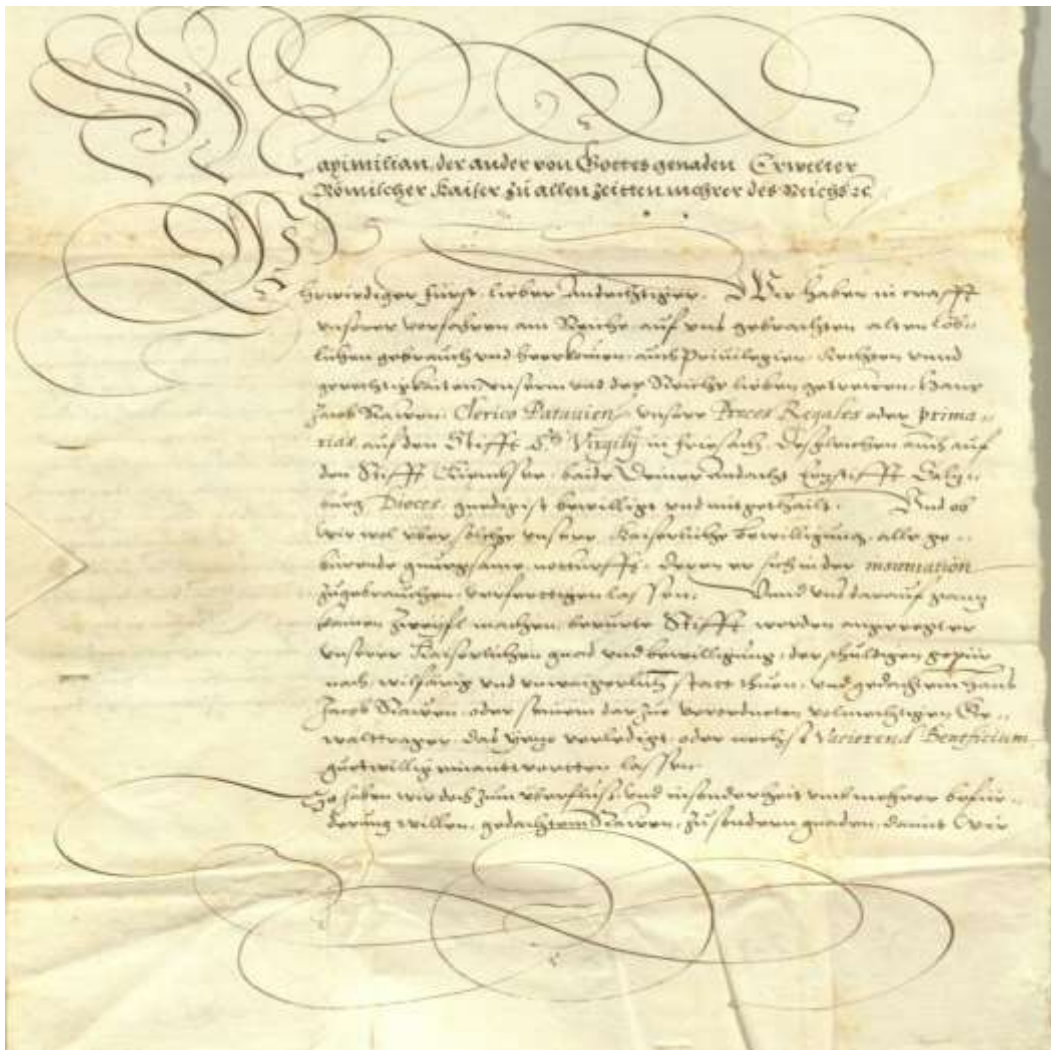 Maximilian der ander von Gottes genaden Erwelter
Römischer Kaiser zu allen zeitten mehrer des Reichs ꝛc.
Ehrwirdiger Fürst lieber Andechtiger. Wir haben in crafft
unserer vorfahren am Reiche auf uns gebrachten alten löb-
lichen gebrauch und heerkomen, auch Privilegien, Rechten unnd
gerechtigkaiten, unserm und des Reichs lieben getrewen, Hanns
Jacob Clerico Patavien unsere Preces Regales oder prima-
rias auf den Stifft S. Virgilij in Friesach, desgleichen auch auf
den Stifft baide Deiner Andacht Erzstiffts Saltz-
burg Dioces, gnedigist bewilligt und mitgethailt. Und ob
wir wol uber solche unsere Kaiserliche bewilligung, alle ge-
bürende gnuegsame notturfft, deren er sich in der insinuation
zugebrauchen, verferttigen lassen. Unnd uns darauf gantz
kainen zweyfl machen, berürte Stifft werden angeregter
unserer Kaiserlichen gnad und bewilligung, der schuldigen gepür
nach, wilfärig und unwaigerlich statt thuen, und gedachtem Hanns
Jacob oder seinem darzue verordneten volmechtigen Ge-
walttrager, das yetzo verledigt oder nechst Beneficium
guetwillig einantwortten lassen
So haben wir doch zum uberfluss, und insonderheit umb mehrer befür-
derung willen, gedachtem zu sondern gnaden, damit Wir